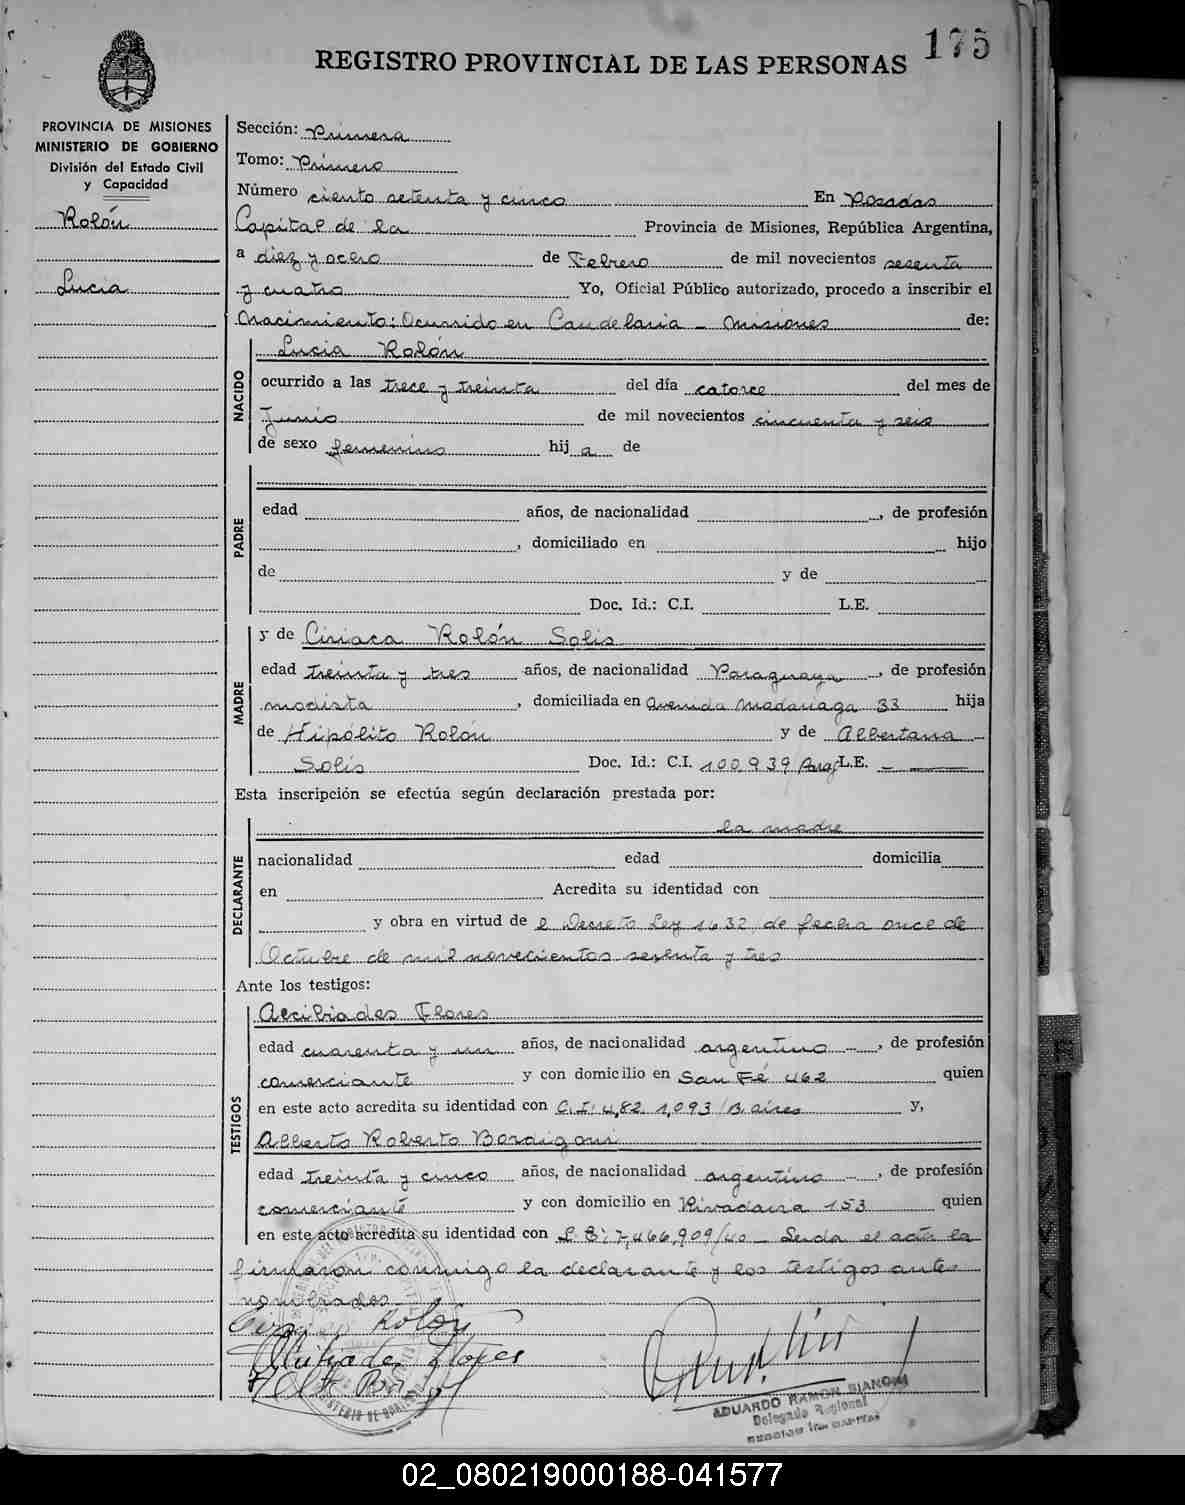 175
REGISTRO PROVINCIAL DE LAS PERSONAS
PROVINCIA DE MISIONES
MINISTERIO DE GOBIERNO
División del Estado Civil
y Capacidad
Rolón
Lucia
Sección: Primera
Tomo: Primero
Número ciento setenta y cinco En Posadas
Capital de la Provincia de Misiones, República Argentina,
a diez y ocho de Febrero de mil novecientos sesenta
y cuatro Yo, Oficial Público autorizado, procedo a inscribir el
Nacimiento: Ocurrido en Candelaria - Misiones de:
NACIDO
Lucia Rolón
ocurrido a las trece y treinta del día catorce del mes de
Junio de mil novecientos cincuenta y seis
de sexo femenino hij a de
PADRE
edad años, de nacionalidad , de profesión
, domiciliado en hijo
de y de
Doc. Id.: C.I. L.E.
MADRE
y de Ciriaca Rolón Solis
edad treinta y tres años, de nacionalidad Paraguaya , de profesión
modista , domiciliada en Avenida Madariaga 33 hija
de Hipólito Rolón y de Albertana
Solis Doc. Id.: C.I. 100.939/Parag L.E. -
Esta inscripción se efectúa según declaración prestada por:
DECLARANTE
la madre
nacionalidad edad domicilia
en Acredita su identidad con
y obra en virtud de l Decreto Ley 1632/ de fecha once de
Octubre de mil novecientos sesenta y tres
Ante los testigos:
TESTIGOS
Alcibiades Flores
edad cuarenta y un años, de nacionalidad argentino , de profesión
comerciante y con domicilio en San Fé 462 quien
en este acto acredita su identidad con C.I: 4,82 1,093/B. aires y,
Alberto Roberto Bordigoni
edad treinta y cinco años, de nacionalidad argentino , de profesión
comerciante y con domicilio en Rivadavia 153 quien
en este acto acredita su identidad con L. E: 7,466,909/40 - Leida el acta la
firmaron conmigo la declarante y los testigos antes
nombrados
Rolón
Alcibiades Flores
EDUARDO RAMON BIANCHI
Delegado Regional
02_080219000188-041577